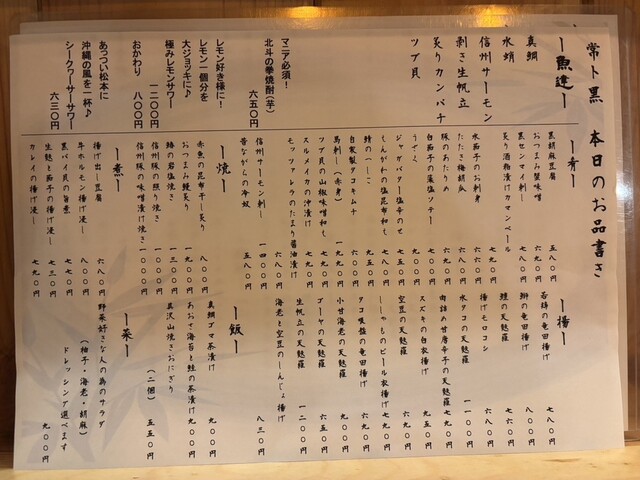 常ト黒 本日のお品書き
ー魚達ー
真鯛
水蛸
信州サーモン
剥き生帆立
炙りカンパチ
ツブ貝
マニア必須！
北斗の拳焼酎(芋)
六五〇円
レモン好き様に！
レモン一個分を
大ジョッキに♪
極みレモンサワー
一二〇〇円
おかわり 八〇〇円
あっつい松本に
沖縄の風を一杯♪
シークヮーサーサワー
六三〇円
ー肴ー
黒胡麻豆腐 五八〇円
おつまみ蟹味噌 六九〇円
黒センマイ刺し 七八〇円
炙り酒粕漬けカマンベール 七九〇円
水茄子のお刺身 六六〇円
たたき梅胡瓜 六七〇円
豚のあたりめ 六九〇円
白茄子の藻塩ソテー 七六〇円
うざく 九七〇円
ジャガバター塩辛のせ 七五〇円
塩昆布和え 七八〇円
九五〇円
自家製タコキムチ 七六〇円
馬刺し(赤身) 一九〇〇円
ツブ貝の山椒味噌和え 七九〇円
スルメイカの沖漬け 七九〇円
モッツァレラのたまり醤油漬け 六八〇円
信州サーモン刺し 一四〇〇円
昔ながらの冷奴 五八〇円
ー焼ー
赤魚の昆布干し炙り 八〇〇円
おつまみ鰻炙り 一九〇〇円
鰆の岩塩焼き 一三〇〇円
信州豚の照り焼き 一〇〇〇円
信州豚の味噌漬け焼き 一〇〇〇円
ー煮ー
揚げ出し豆腐 六八〇円
牛ホルモン揚げ浸し 八八〇円
黒バイ貝の旨煮 七七〇円
生麩と茄子の揚げ浸し 七三〇円
カレイの揚げ浸し 七九〇円
ー揚ー
若鶏の竜田揚げ 七八〇円
鰤の竜田揚げ 八〇〇円
鱧の天麩羅 七六〇円
揚げモロコシ 六八〇円
水タコの天麩羅 一一〇〇円
肉詰め甘唐辛子の天麩羅 七九〇円
スズキの白衣揚げ 九五〇円
空豆の天麩羅 六九〇円
ししゃものビール衣揚げ 七九〇円
タコ吸盤の竜田揚げ 六四〇円
小甘海老の天麩羅 九〇〇円
ゴーヤの天麩羅 六五〇円
生帆立の天麩羅 一二〇〇円
海老と空豆のしんじょ揚げ 八三〇円
ー飯ー
真鯛ゴマ茶漬け 九〇〇円
あおさ海苔と鮭の茶漬け 九〇〇円
黒沢山焼きおにぎり (二個) 五五〇円
ー菜ー
野菜好きな人の為のサラダ
(柚子・海老・胡麻)
ドレッシング選べます
九〇〇円